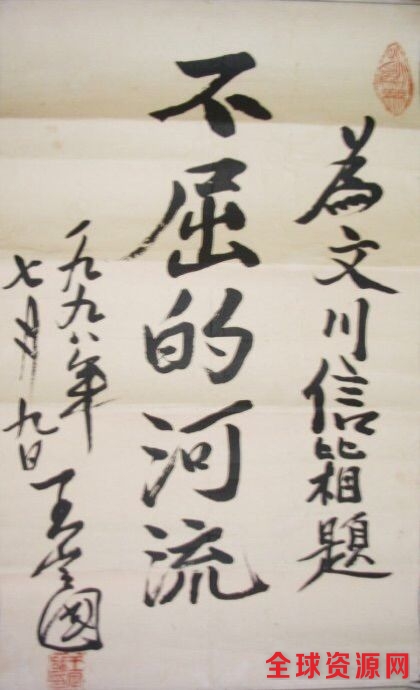 為文川信箱題
不屈的河流
一九九八年
七月九日
王定國
全球资源网